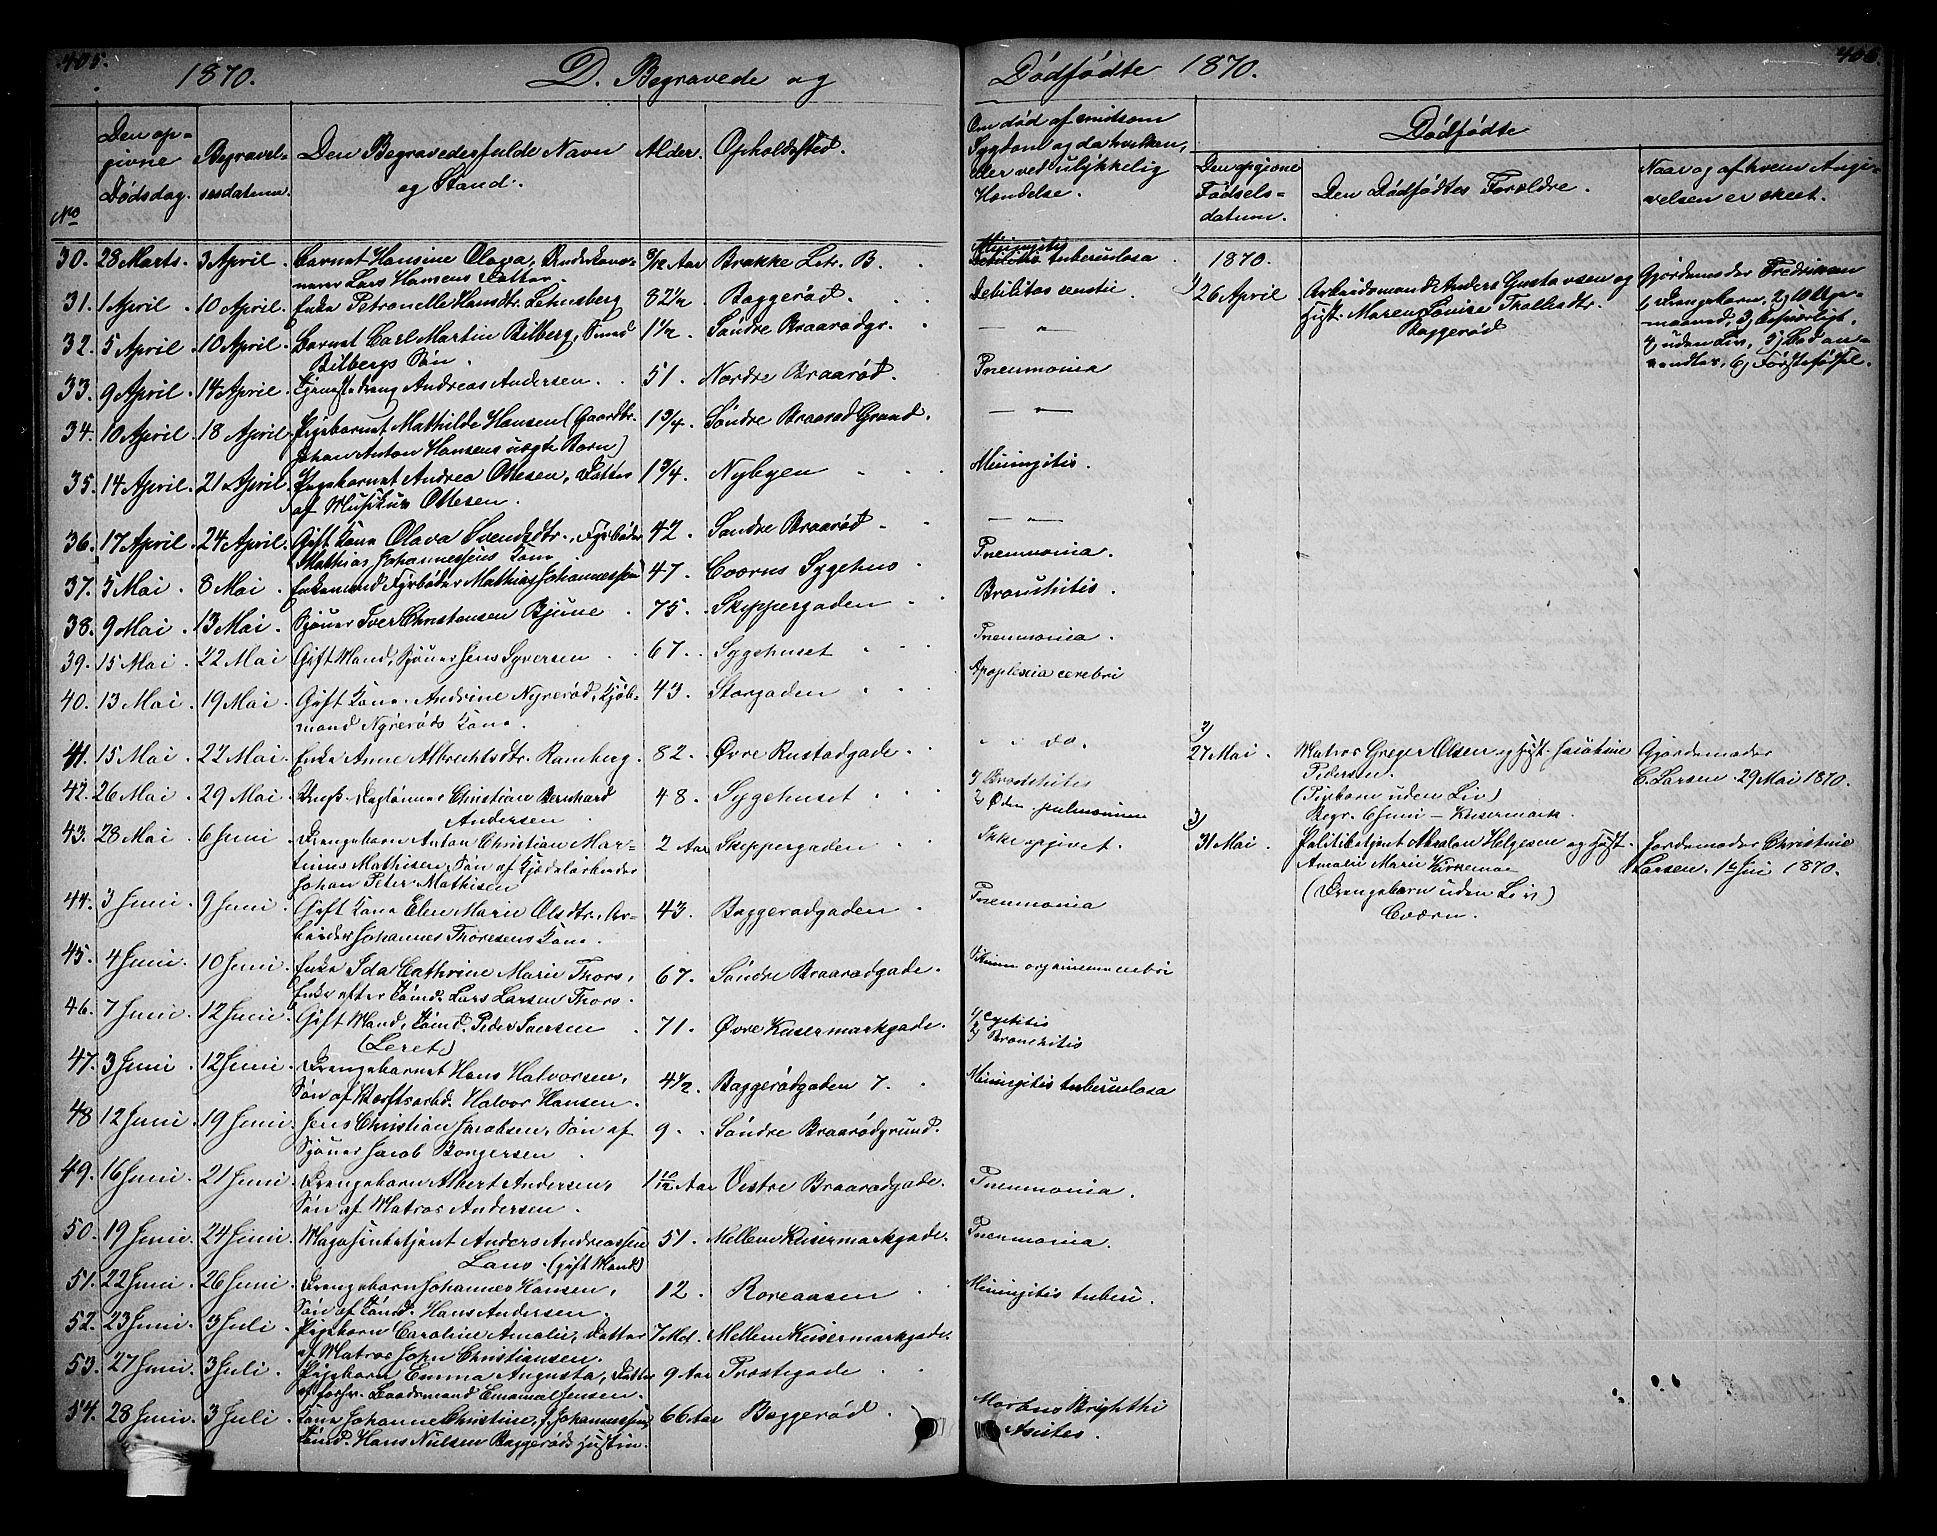 405.
1870.
D. Begravede og
No
Den op-
givne
Dødsdag.
Begravel-
sesdatum.
Den Begravedes fulde Navn
og Stand.
Alder.
Opholdssted.
30. 28 Marts. 3 April. Barnet Hansine Olava, 9/12 Aar Brakke Litr. B.
Lars Hansens Datter
31. 1 April 10 April. Enke Petronelle Hansdtr. 82 1/2 Baggerød.
32. 5 April. 10 April. Barnet Carl Martin Bilberg, Smed 1 1/2. Søndre Braarødgr.
Bilbergs Søn.
33. 9 April. 14 April. Tjenestedreng Andreas Andersen. 51. Nordre Braarød.
34. 10 April. 18 April. Pigebarnet Mathilde Hansen (Gaardbr. 1 3/4. Søndre Braarød Grund.
Johan Anton Hansens uægte Barn)
35. 14 April. 21 April. Pigebarnet Andrea Ottesen, Datter 1 3/4. Nybyen
af Musikus Ottesen.
36. 17 April 24 April. Gift Kone Olava Svendsdtr., Fyrbøder 42. Søndre Braarød
Mathias Johannessens Kone
37. 5 Mai 8 Mai Enkemand Fyrbøder Mathias Johannessen 47. Coærns Sygehus
38. 9 Mai. 13 Mai. Sjømand Iver Christensen Bjune 75. Skippergaden
39. 15 Mai 22 Mai Gift Mand, Syversen 67. Sygehuset
40. 13 Mai. 19 Mai. Gift Kone Andrine Nyrerød, Kjøb- 43. Storgaden
mand Nyrerøds Kone.
41. 15 Mai 22 Mai. Enke Anne Albrechtsdtr. Ramberg. 82. Øvre Rustadgade.
42. 26 Mai 29 Mai Christian Bernhard 48. Sygehuset
Andersen
43. 28 Mai 6 Juni Drengebarn Anton Christian Mar- 2 Aar Skippergaden
tinius Mathisen, Søn af
Johan Peter Mathisen
44. 3 Juni 9 Juni. Gift Kone Elen Marie Olsdtr. Ar- 43. Baggerødgaden
beider Johannes Thoresens Kone.
45. 4 Juni. 10 Juni. Enke Ida Cathrine Marie Thors, 67. Søndre Braarødgade.
Enke efter Tømd. Lars Larsen Thors.
46. 7 Juni. 12 Juni. Gift Mand, Tømd. Peder Iversen 71. Øvre Keisermarkgade.
(Leret)
47. 3 Juni 12 Juni Drengebarnet Hans Halvorsen, 4 1/2. Baggerødgaden 7.
Søn af Værftsarbd. Halvor Hansen.
48 12 Juni. 19 Juni. Jens Christian Jacobsen, Søn af 9. Søndre Braarødgrund.
Jacob Borgersen
49. 16 Juni. 21 Juni. Drengebarn Albert Andersen, 1 10/12 Aar Vestre Braarødgade.
Søn af Matros Andersen.
50. 19 Juni. 24 Juni. Magasinbetjent Anders Andreassen 51. Mellem Keisermarkgade.
(gift Mand)
51. 22 Juni. 26 Juni. Drengebarn Johannes Hansen, 12. Roreaasen
Søn af Tømd. Hans Andersen.
52. 23 Juni. 3 Juli. Pigebarn Caroline Amalie, Datter 7 Md. Mellem Keisermarkgade.
af Matros John Christiansen.
53. 27 Juni. 3 Juli. Pigebarn Emma Augusta, Datter 9 Aar Prostegade
af forhv. Baadsmand Emanuel Jensen.
54. 28 Juni. 3 Juli. Kone Johanne Christine, f. Johannessen, 66 Aar Baggerød.
Tømd. Hans Nielsen Baggerøds Hustru.
406.
Dødfødte 1870.
Om død af smitsom
Sygdom og da hvilken,
eller ved ulykkelig
Hændelse.
Dødfødte
Den opgivne
Fødsels-
datum.
Den Dødfødtes Forældre.
Naar og af hvem Angi-
velsen er skeet.
Miningitis
tuberculosa.
Debilitas
— " —
Pneumonia
— " —
Miningitis.
— " —
Pneumonia.
Bronchitis.
Pneumonia.
Apoplexia cerebri
" " do.
1) Bronchitis
2) Ødem. pulmonum
Ikke opgivet.
Pneumonia
1) Cystitis
2) Bronchitis
Miningitis tuberculosa
Pneumonia.
Pneumonia.
Miningitis tuberc.
Morbus Brighthi
Ascites.
1870.
1) 26 April Arbeidsmand Anders Gustavsen og
Hust. Maren Lovise Trollesdtr.
Baggerød
Gjordemoder Fredriksen
1) Drengebarn, 2) 10 Uge-
maaned,
4) uden Liv,
6) Førstefødsel.
2)
27 Mai. Matros Greger Olsen og Hust. Jacobine
Pedersen.
(Pigebarn uden Liv)
Begr. 6 Juni – Keisermark.
Gjordemoder
C. Larsen. 29 Mai 1870.
3)
31 Mai. Politibetjent Absalon Helgesen og Hust.
Amalie Marie Kirkemoe
(Drengebarn uden Liv)
Coærn.
Jordemoder Christine
Larsen. 1ste Juni 1870.